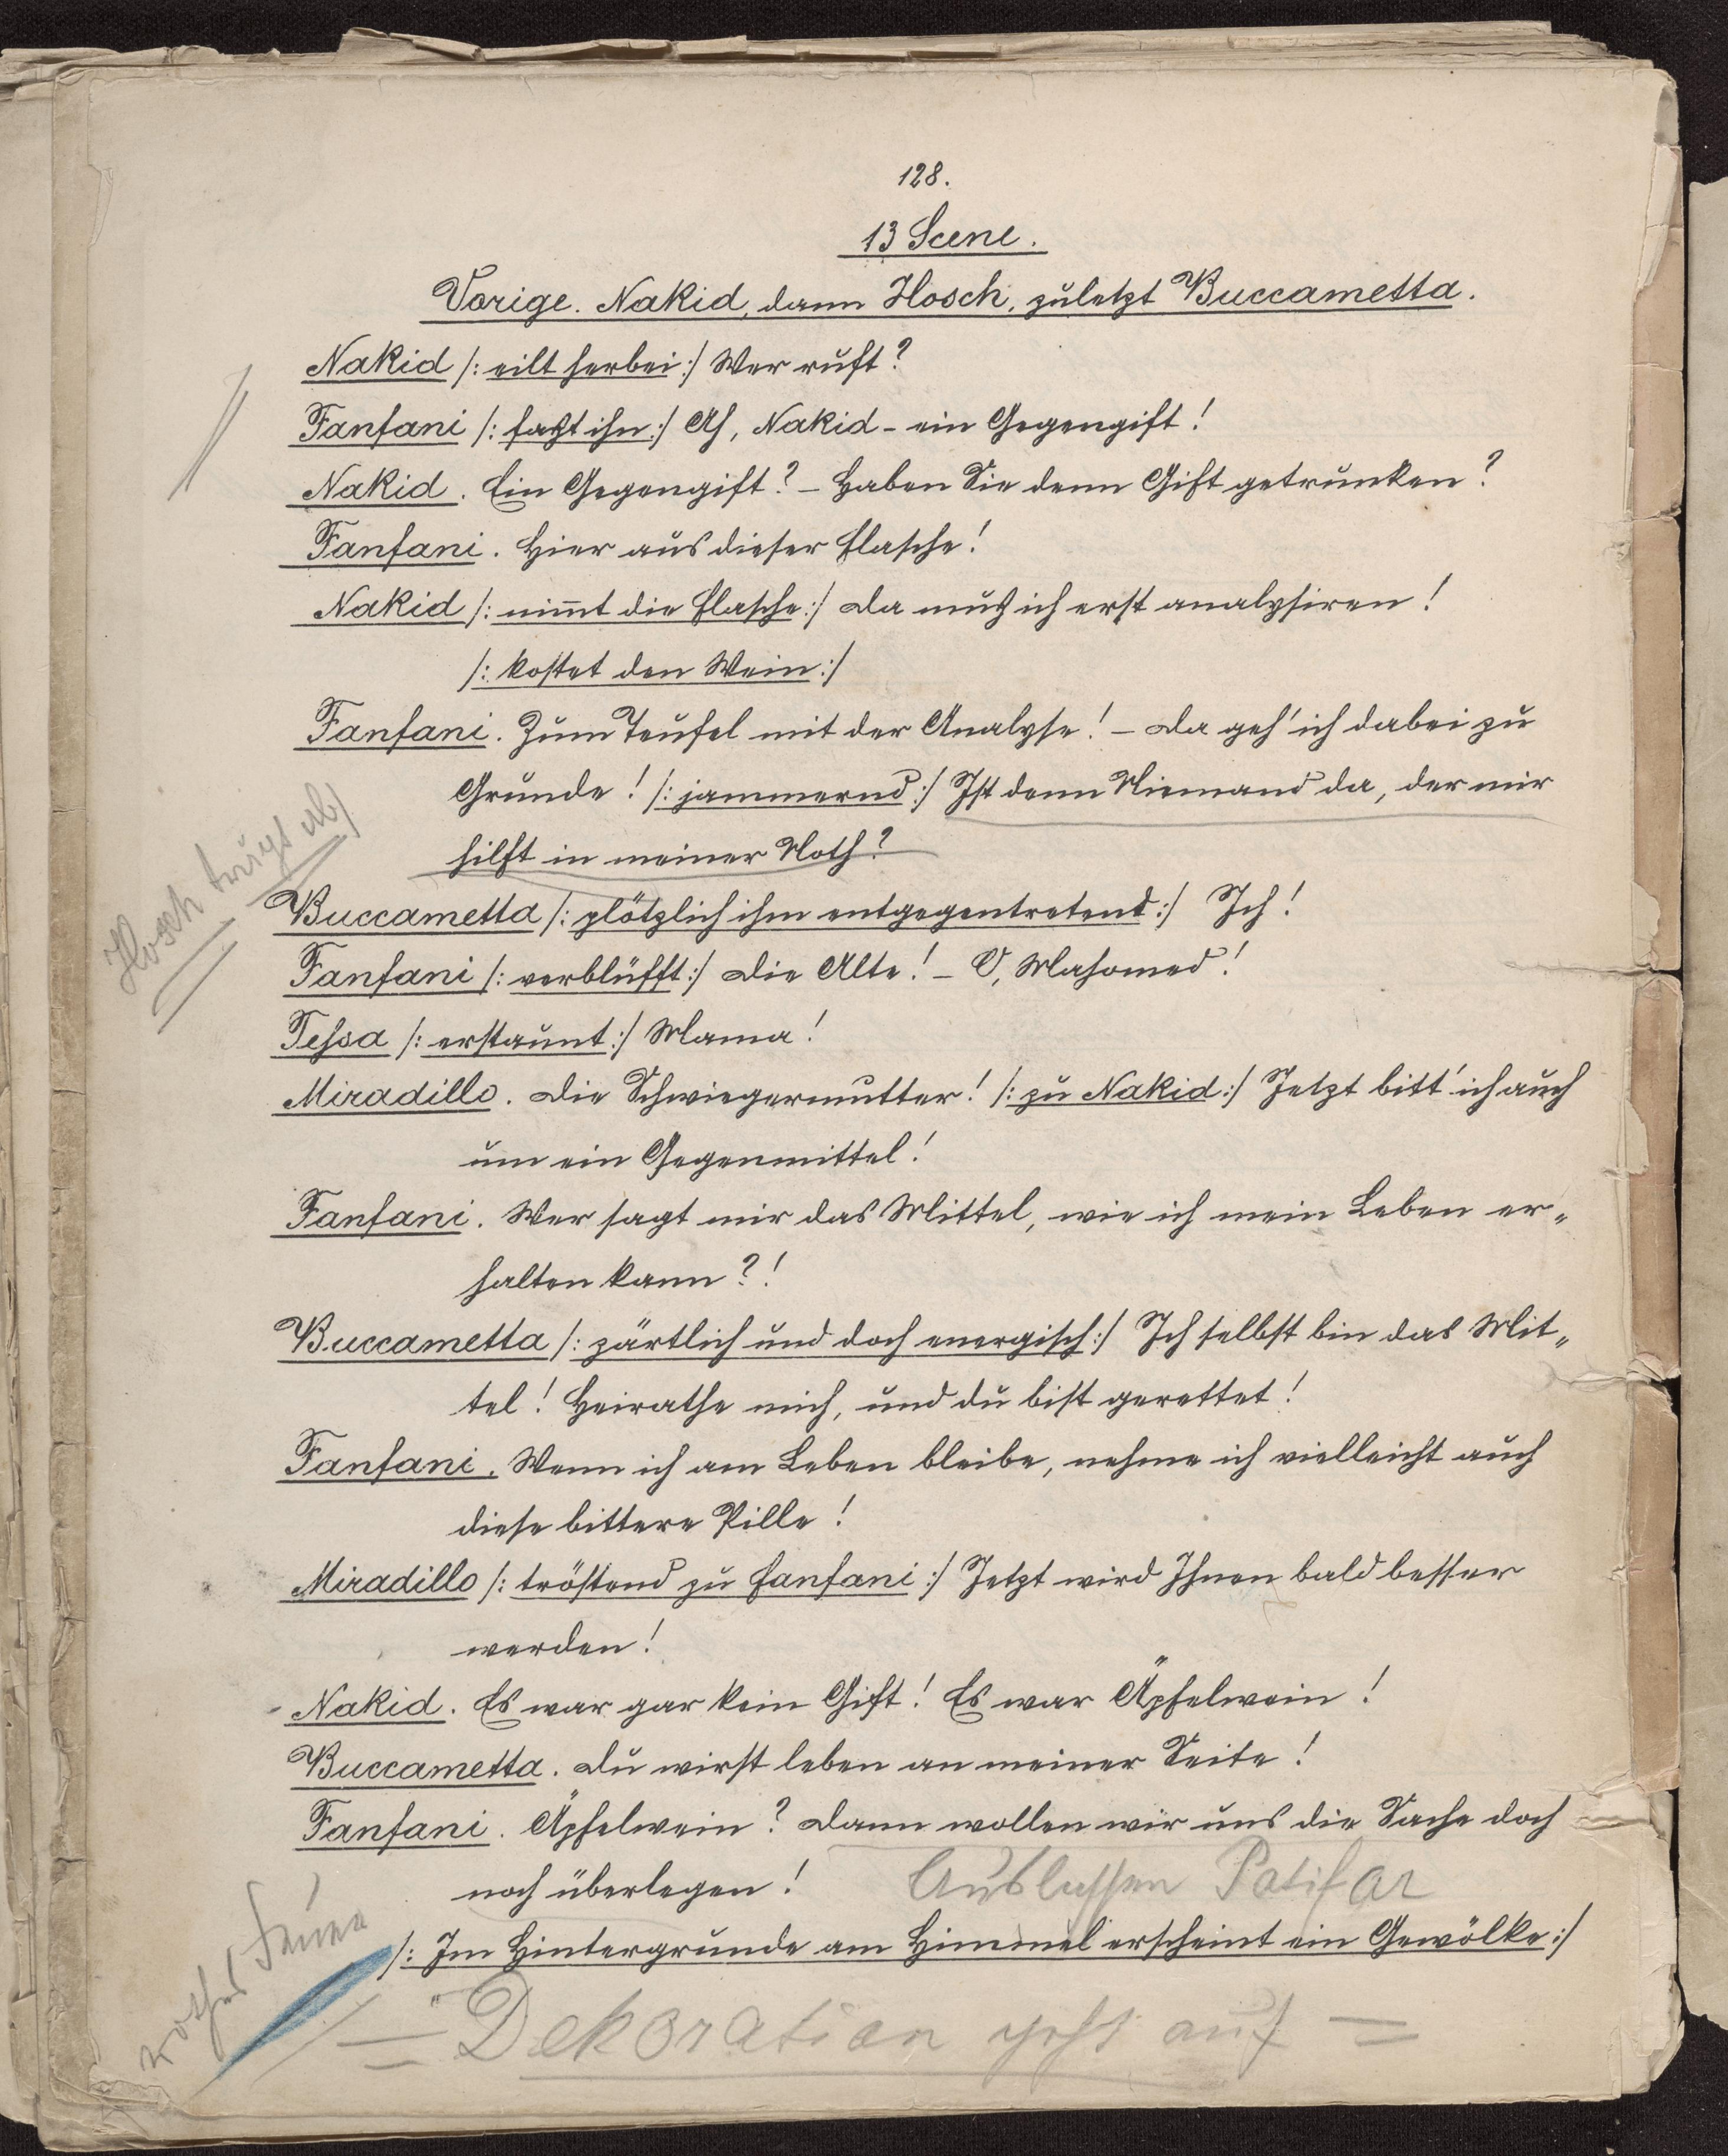 128.
13 Scene.
Vorige. Nakid, dann Hosch, zuletzt Buccametta.
Nakid /: eilt herbei :/ Wer ruft?
Fanfani /: faßt ihn :/ Ah, Nakid – ein Gegengift!
Nakid. Ein Gegengift? – Haben Sie denn Gift getrunken?
Fanfani. Hier aus dieser Flasche!
Nakid /: nim̄t die Flasche :/ Da muß ich erst analysiren!
/: kostet den Wein :/
Fanfani. Zum Teufel mit der Analyse! – Da geh' ich dabei zu
Grunde! /: jammernd :/ Ist denn Niemand da, der mir
hilft in meiner Noth?
Hosch trägt ab
Buccametta /: plötzlich ihm entgegentretend :/ Ich!
Fanfani /: verblüfft :/ Die Alte! – O, Mahomed!
Tessa /: erstaunt :/ Mama!
Miradillo. Die Schwiegermutter! /: zu Nakid :/ Jetzt bitt' ich auch
um ein Gegenmittel!
Fanfani. Wer sagt mir das Mittel, wie ich mein Leben er„
halten kann?!
Buccametta /: zärtlich und doch energisch :/ Ich selbst bin das Mit„
tel! Heirathe mich, und du bist gerettet!
Fanfani. Wenn ich am Leben bleibe, nehme ich vielleicht auch
diese bittere Pille!
Miradillo /: tröstend zu Fanfani :/ Jetzt wird Ihnen bald besser
werden!
Nakid. Es war gar kein Gift! Es war Äpfelwein!
Buccametta. Du wirst leben an meiner Seite!
Fanfani. Äpfelwein? Dann wollen wir uns die Sache doch
noch überlegen! Auslassen Potifar
/: Im Hintergrunde am Himmel erscheint ein Gewölke :/
rothes
= Dekoration geht auf =